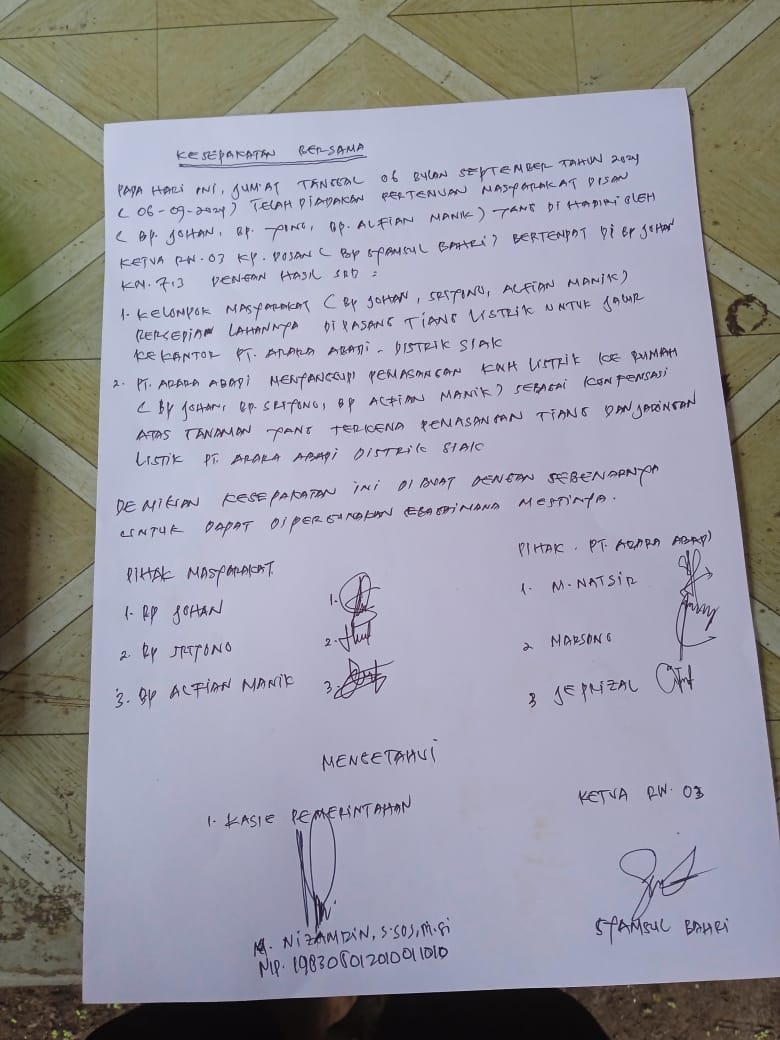 KESEPAKATAN BERSAMA
PADA HARI INI, JUMAT TANGGAL 06 BULAN SEPTEMBER TAHUN 2024
( 06-09-2024 ) TELAH DIADAKAN PERTEMUAN MASYARAKAT DISAN
( BP. JOHAN, BP. YONO, BP. ALFIAN MANIK ) YANG DI HADIRI OLEH
KETUA RW. 03 KP. DOSAN ( BP SYAMSUL BAHRI ) BERTEMPAT DI BP JOHAN
KM. 7,3 DENGAN HASIL SBB :
1. KELOMPOK MASYARAKAT ( BP JOHAN, SRIYONO, ALFIAN MANIK )
BERSEDIAH LAHANNYA DI PASANG TIANG LISTRIK UNTUK JALUR
KE KANTOR PT. ARARA ABADI - DISTRIK SIAK
2. PT. ARARA ABADI MENYANGGUPI PEMASANGAN KWH LISTRIK KE RUMAH
( BP JOHAN, BP. SRIYONO, BP ALFIAN MANIK ) SEBAGAI KOMPENSASI
ATAS TANAMAN YANG TERKENA PEMASANGAN TIANG DAN JARINGAN
LISTIK PT. ARARA ABADI DISTRIK SIAK
DEMIKIAN KESEPAKATAN INI DI BUAT DENGAN SEBENARNYA
UNTUK DAPAT DIPERGUNAKAN SEBAGAIMANA MESTINYA.
PIHAK MASYARAKAT
1. BP JOHAN 1.
2 BP SRIYONO 2.
3. BP ALFIAN MANIK 3.
PIHAK. PT. ARARA ABADI
1. M. NATSIR
2 MARSONO
3 JEPRIZAL
MENGETAHUI
1. KASIE PEMERINTAHAN
M. NIZAMDIN, S.SOS, M.Si
NIP. 198308012010011010
KETUA RW. 03
SYAMSUL BAHRI